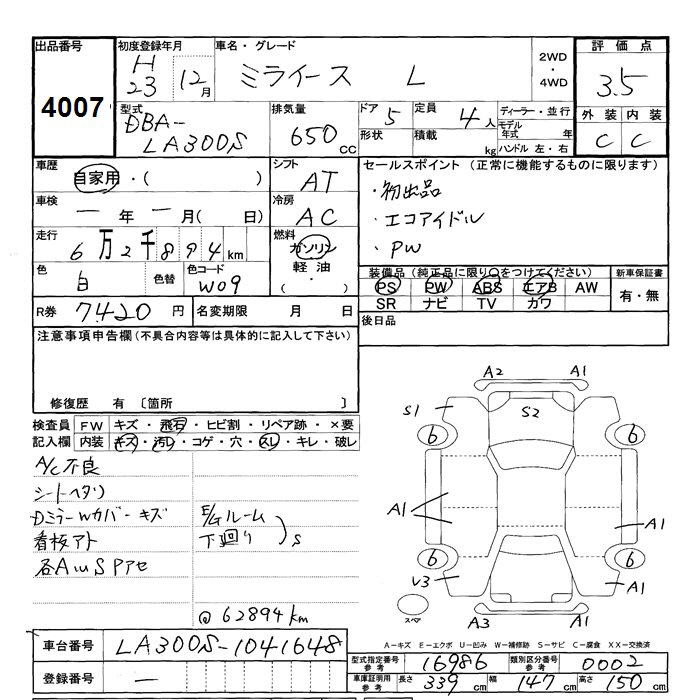 出品番号
4007
初度登録年月
H23 12月
車名・グレード
ミライース L
2WD・4WD
評価点
3.5
外装 内装
C C
型式
DBA-LA300S
排気量
650 CC
ドア 5
定員 4人
形状
積載 kg
ディーラー・並行
モデル年式 年
ハンドル 左・右
車歴
自家用・( )
シフト
AT
セールスポイント (正常に機能するものに限ります)
・初出品
・エコアイドル
・PW
車検
一年 一月( 日)
冷房
AC
走行
6万2千894km
燃料
ガソリン
軽油
・( )
色
白
色替
色コード
W09
装備品(純正品に限り○をつけてください)
PS PW ABS エアB AW
SR ナビ TV カワ
新車保証書
有・無
R券 7,420円
名変期限 月 日
後日品
注意事項申告欄(不具合内容等は具体的に記入して下さい)
修復歴 有 〔箇所 〕
検査員記入欄
FW キズ・飛石・ヒビ割・リペア跡・×要
内装 キズ・汚レ・コゲ・穴・スレ・キレ・破レ
A/C不良
シートヘタリ
Dミラーwカバーキズ
看板アト
各AuSPアセ
E/Gルーム
下廻り
S
@62894km
A2 A1
S1 S2
6 6
A1 A1
6 6
V3 A1
スペア
A3 A1
A-キズ E-エクボ U-凹み W-補修跡 S-サビ C-腐食 XX-交換済
車台番号 LA300S-1041648
登録番号 一
型式指定番号 参考 16986
類別区分番号 参考 0002
車庫証明用 参考 長さ 339cm 幅 147cm 高さ 150cm